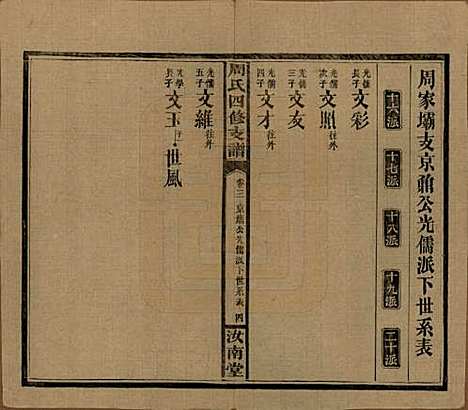 周家壩支京鼐公光儒派下世系表
十六派 十七派 十八派 十九派 二十派
光儒長子 文彩
光儒次子 文照
光儒三子 文友
光儒四子 文才 往外
周氏四修支譜 卷三 京鼐公光儒派下世系表 四 汝南堂
光儒五子 文維 往外
文學長子 文玉 世風